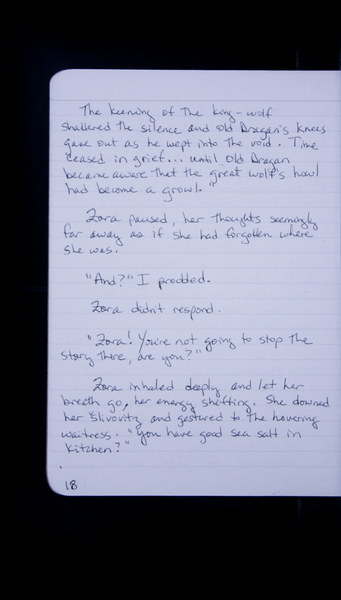 The keening of the king-wolf
shattered the silence and Old Dragan's knees
gave out as he wept into the void. Time
ceased in grief... until Old Dragan
became aware that the great wolf's howl
had become a growl."
Zora paused, her thoughts seemingly
far away as if she had forgotten where
she was.
"And?" I prodded.
Zora didn't respond.
"Zora! You're not going to stop the
story there, are you?"
Zora inhaled deeply and let her
breath go, her energy shifting. She downed
her Slivovitz and gestured to the hovering
waitress. "You have good sea salt in
kitchen?"
18